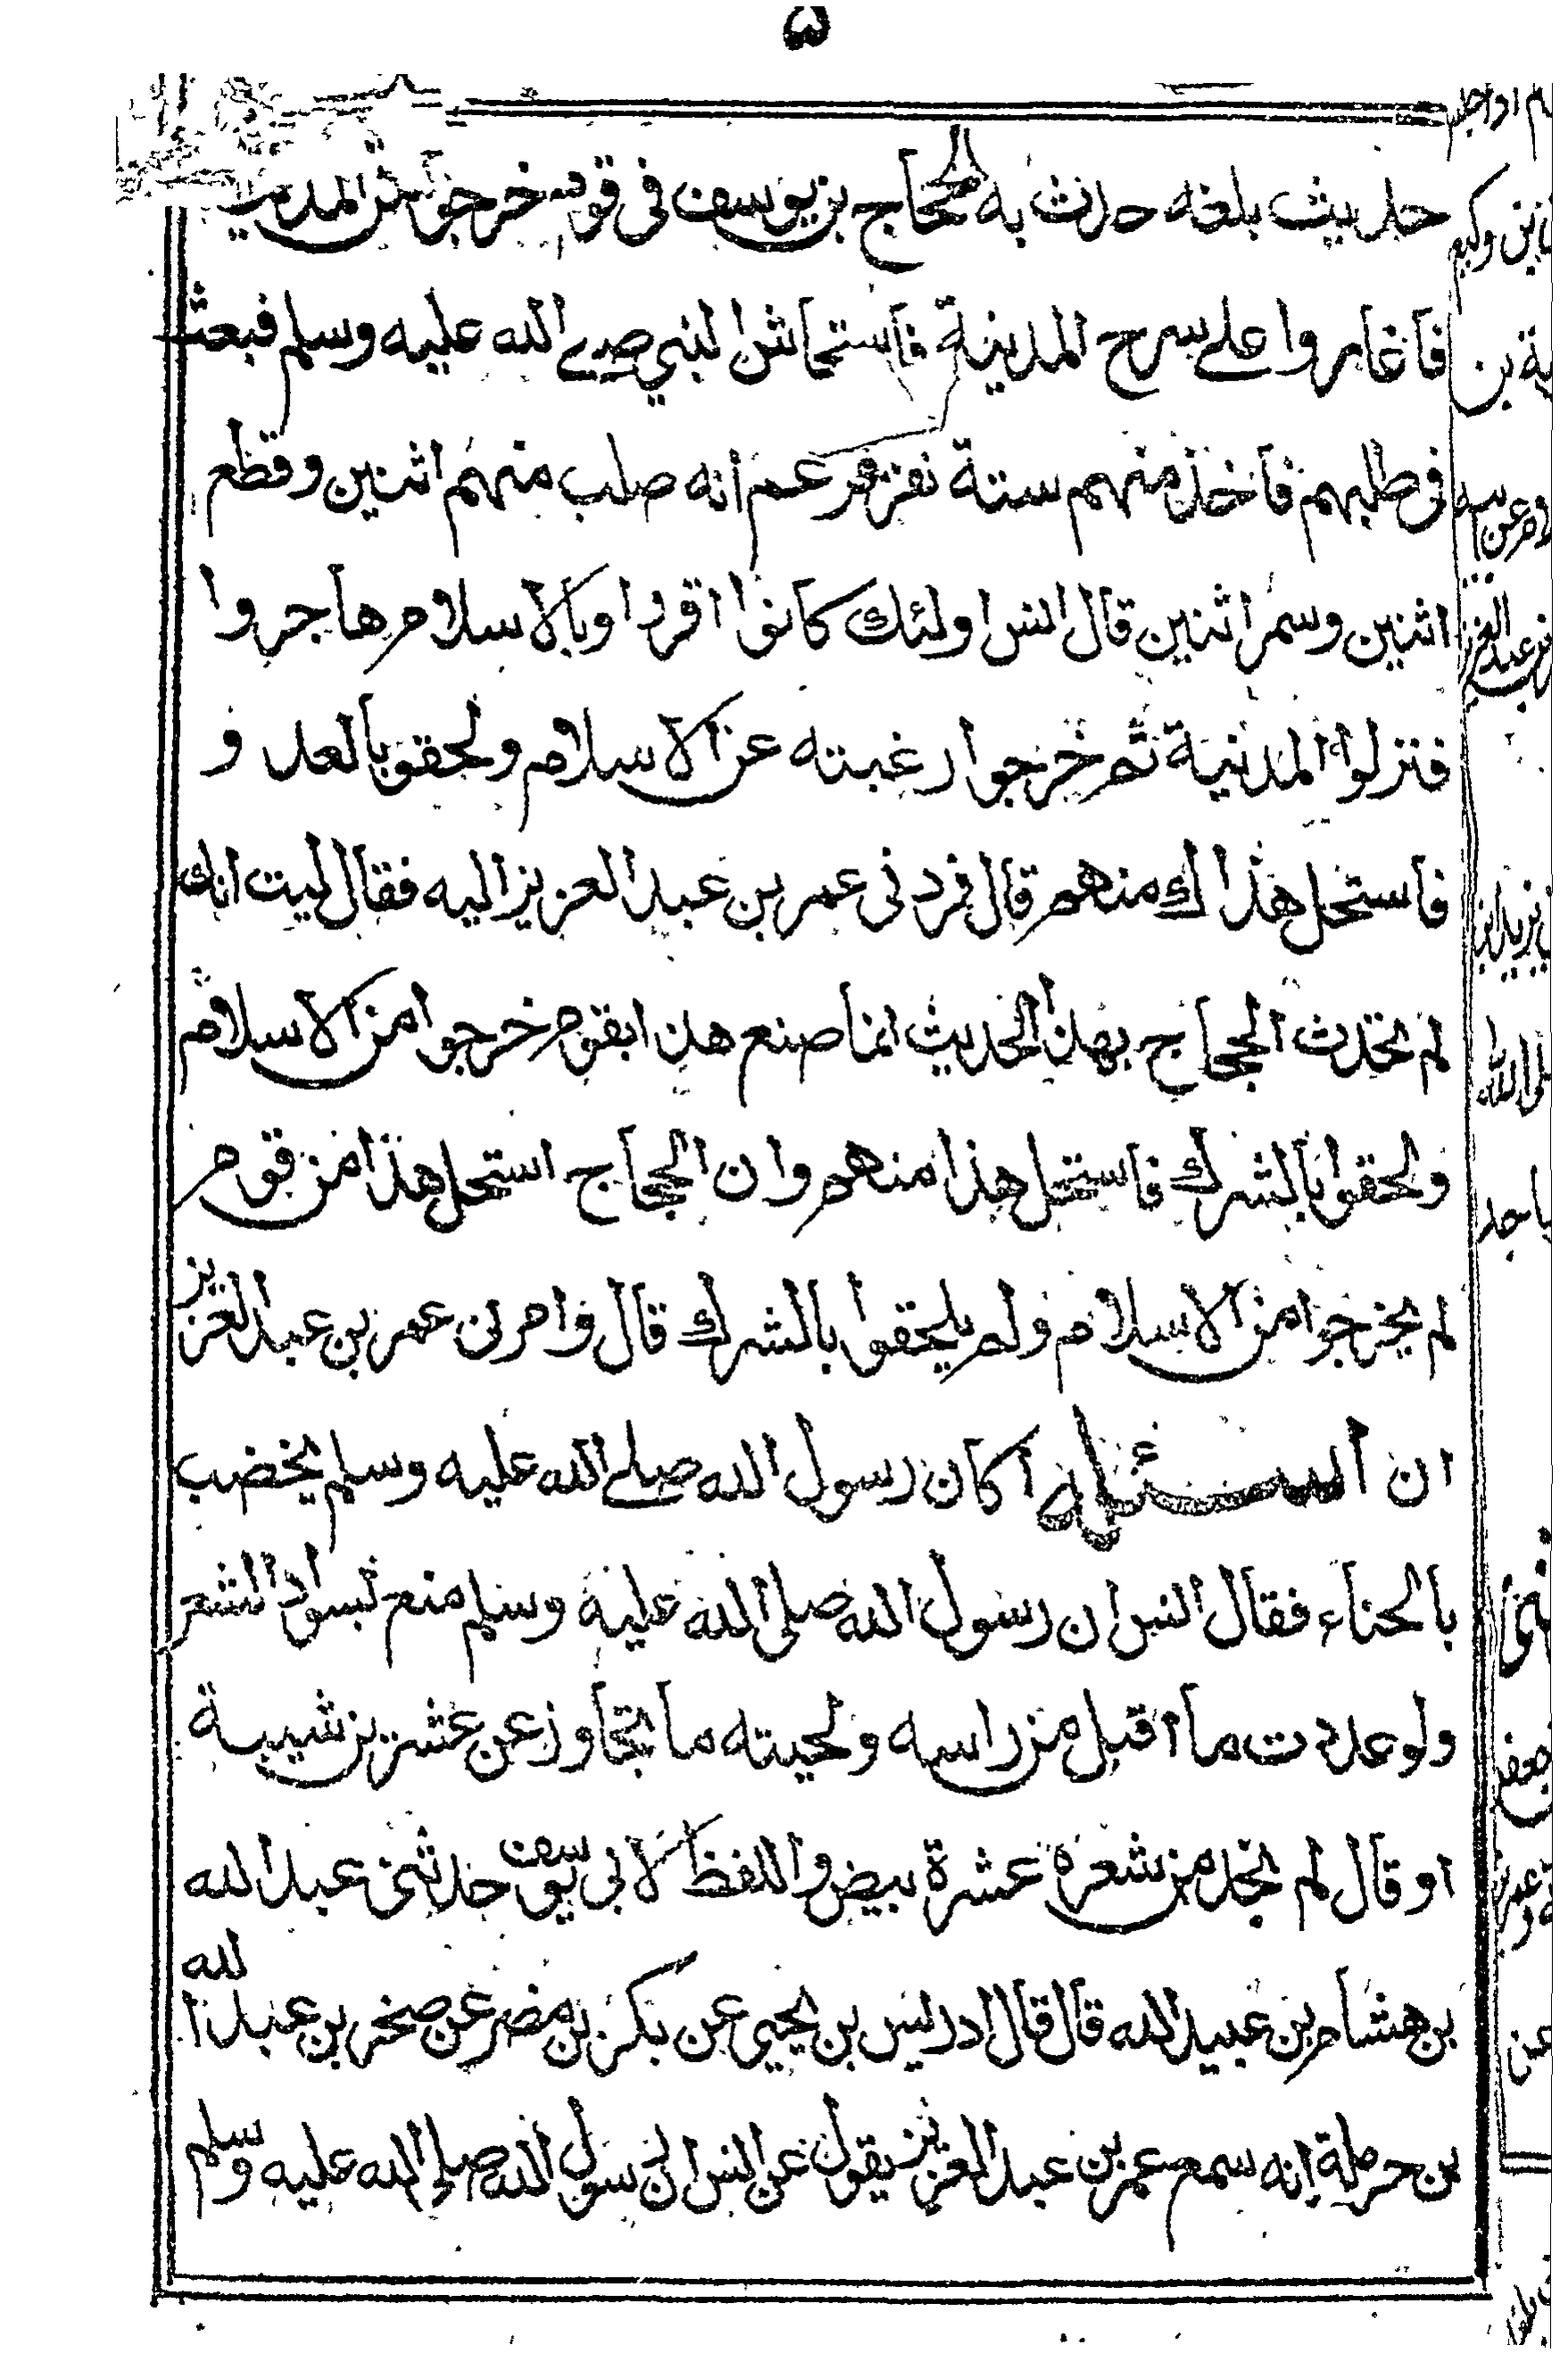 ۵
حديث بلغه حدث به الحجاج بن يوسف في قوم خرجوا من المدينة
فاغاروا على سرح المدينة فاستحاش النبي صلى الله عليه وسلم فبعث
فى طلبهم فاخذ منهم ستة نفر فزعم انه صلب منهم اثنين وقطع
اثنين وسمر اثنين قال انس اولئك كانوا اقروا وبالاسلام هاجروا
فنزلوا المدنية ثم خرجوا رغبته عن الاسلام ولحقوا بالعدو
فاستحل هذاك منهم قال فردنى عمر بن عبد العزيز اليه فقال ليت انك
لم تحدث الحجاج بهذا الحديث انما صنع هذا بقوم خرجوا من الاسلام
ولحقوا بالشرك فاستحل هذا منهم وان الحجاج استحل هذا من قوم
لم يخرجوا من الاسلام ولم يلحقوا بالشرك قال وامرنى عمر بن عبد العزيز
ان أسئله أكان رسول الله صلى الله عليه وسلم يخضب
بالحناء فقال انس ان رسول الله صلى الله عليه وسلم منع بسواد الشعر
ولو عددت ما أقبل من راسه ولحيته ما تجاوز عن عشرين شيبة
او قال لم تجد من شعره عشرة بيض واللفظ لابى يوسف حدثنى عبد الله
بن هشام بن عبيد الله قال قال ادريس بن يحيى عن بكر بن مضر عن صخر بن عبد الله
بن حرملة انه سمع عمر بن عبد العزيز يقول عن انس ان رسول الله صلى الله عليه وسلم